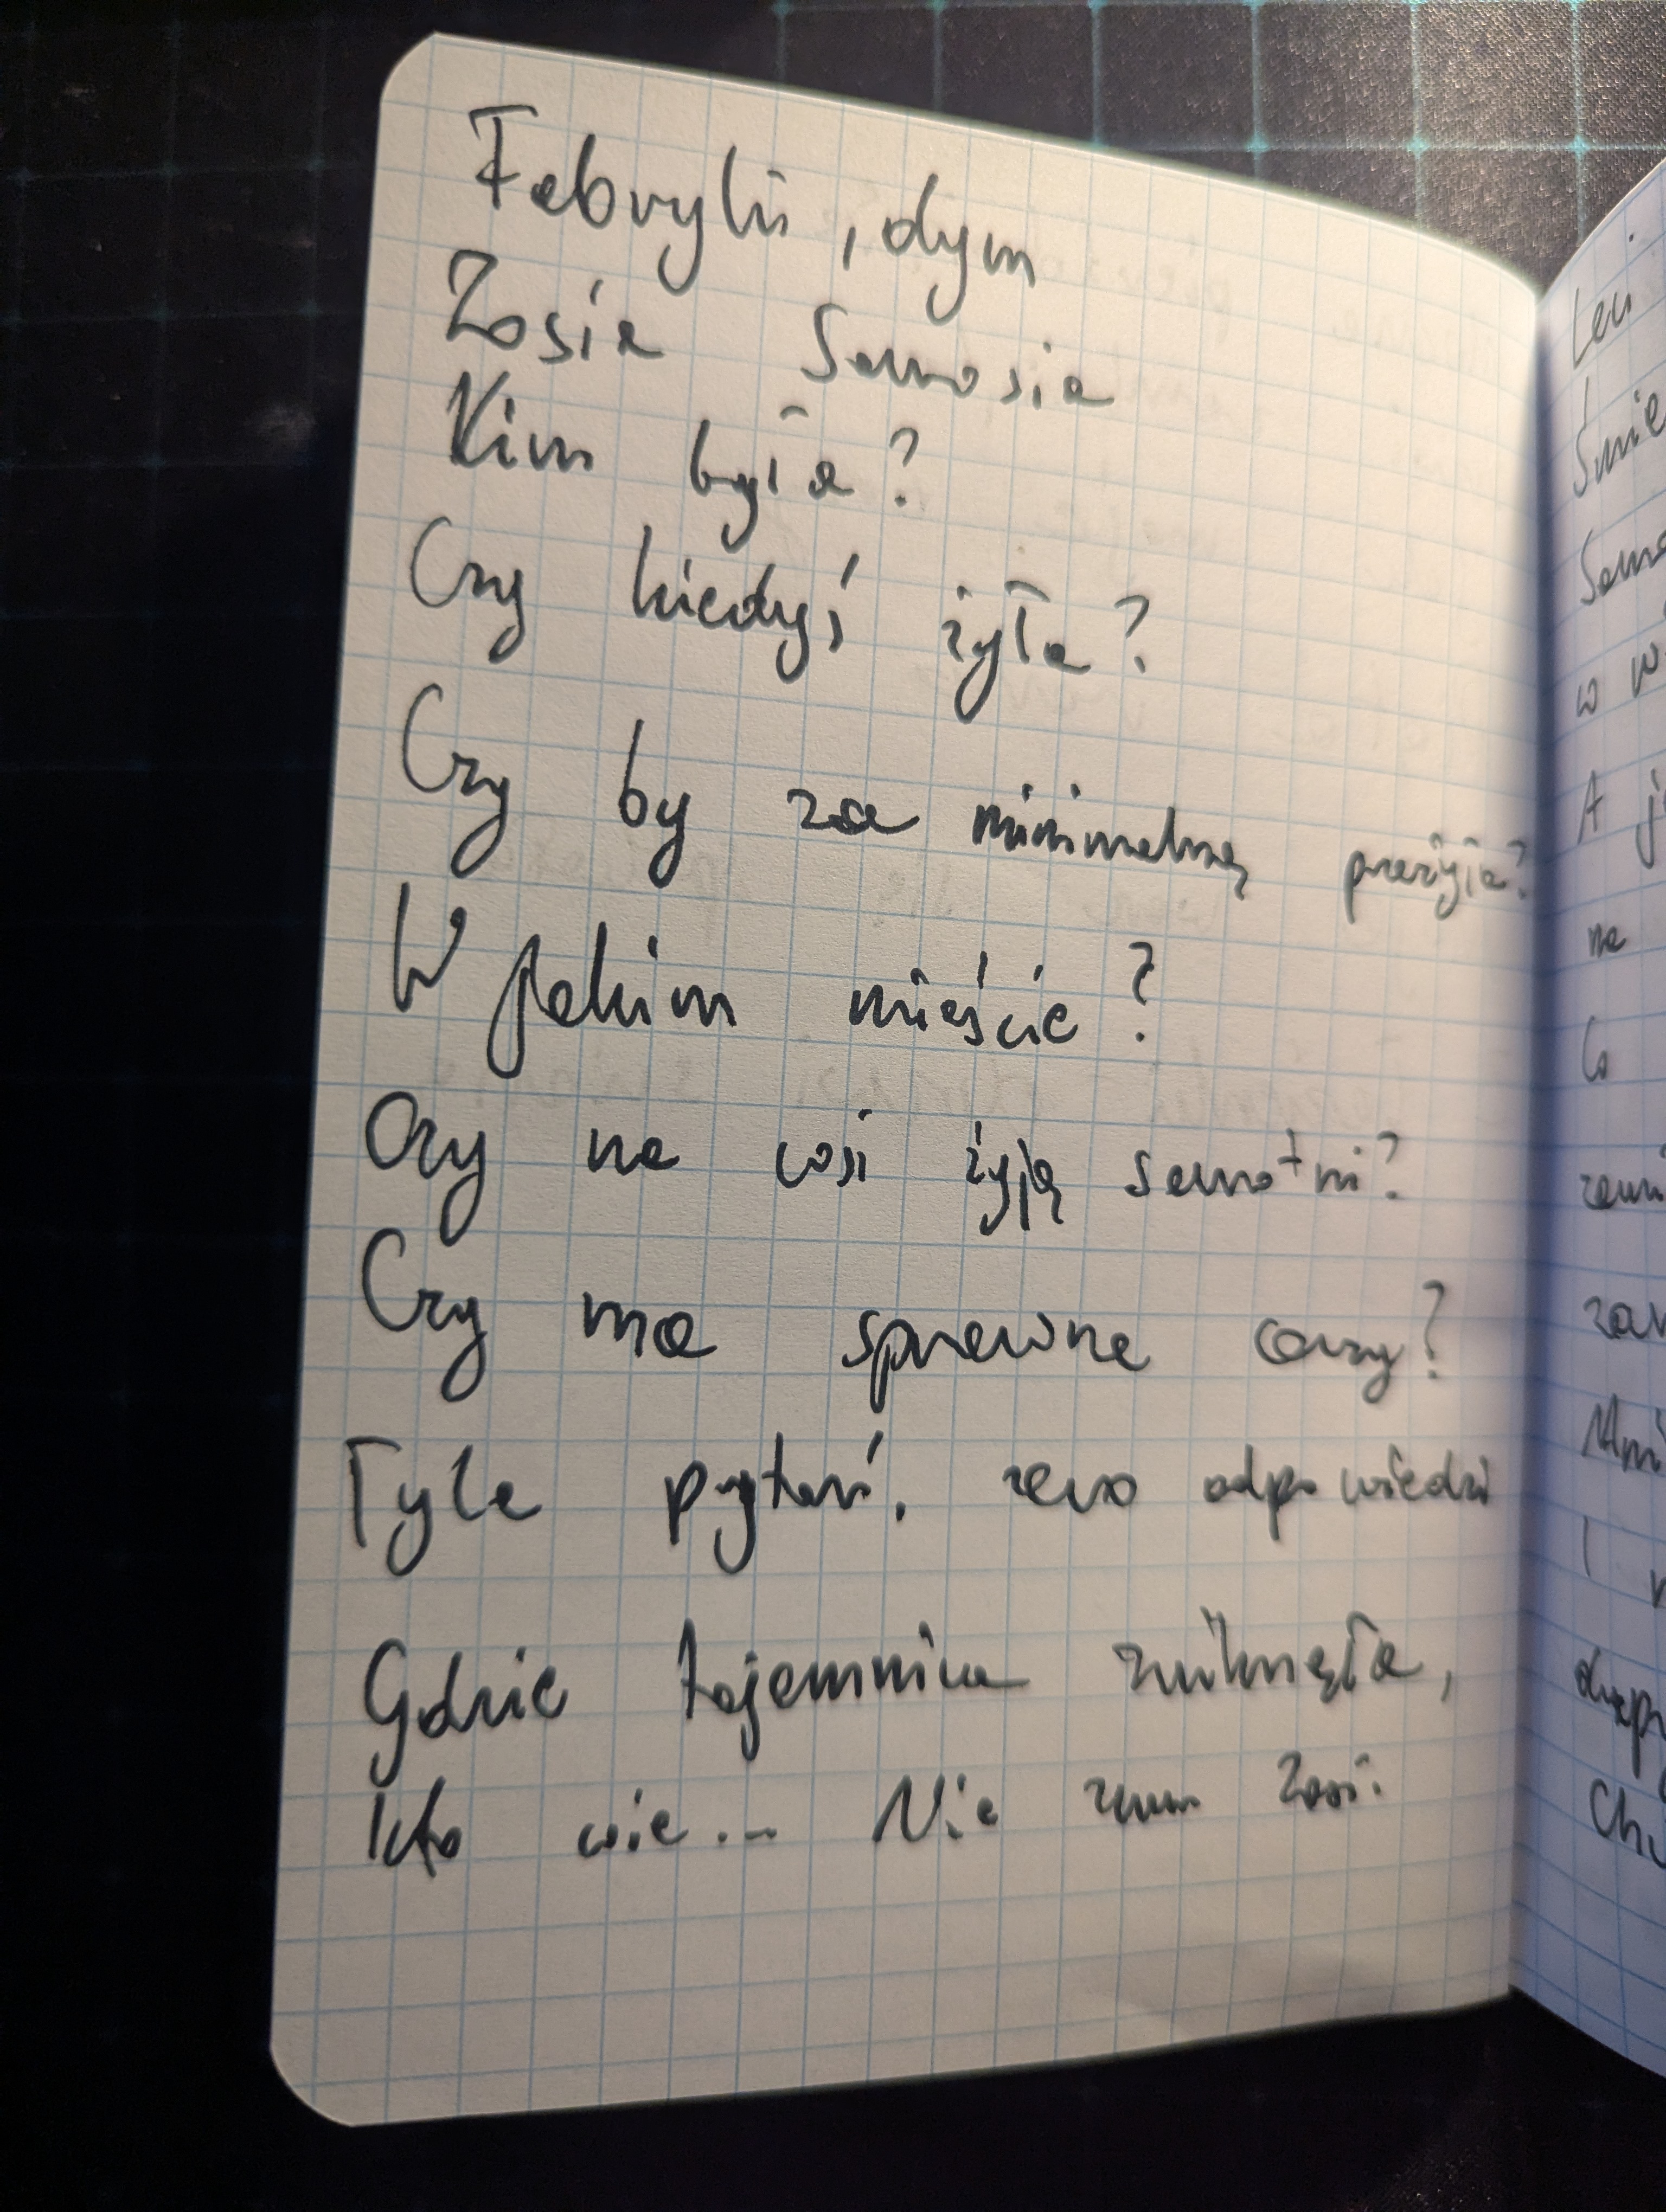 Fabryki, dym
Zosia Samosia
Kim była?
Czy kiedyś żyła?
Czy by za minimalną przeżyła?
W jakim mieście?
Czy na wsi żyją samotni?
Czy ma sprawne oczy?
Tyle pytań, zero odpowiedzi
Gdzie tajemnica zniknęła,
kto wie... Nie znam Zosi.